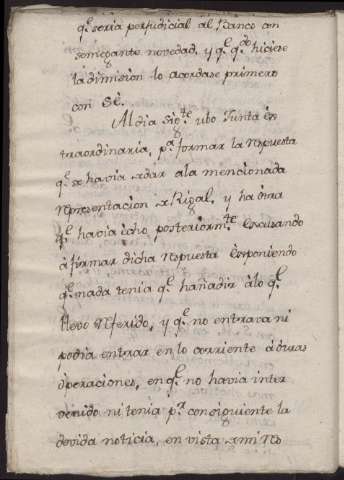 qe. seria perjudicial al Banco con
semejante novedad, y qe. qdo. hiciese
la dimision lo acordase primero
con Sè.
Al dia sigte. ubo Junta èx
traordinaria, pa. formar la respuesta
qe. se havia de dar ala mencionada
representacion de Rigal, y ha otra
qe. havia echo posteriormte. escusando
à firmar dicha respuesta èsponiendo
qe. nada tenia qe. hañadir àlo qe.
llevo referido, y qe. no entrava ni
podia entrar en lo corriente à otras
òperaciones, en qe. no havia inter
venido ni tenia pr. consiguiente la
devida noticia, en vista de mi Re